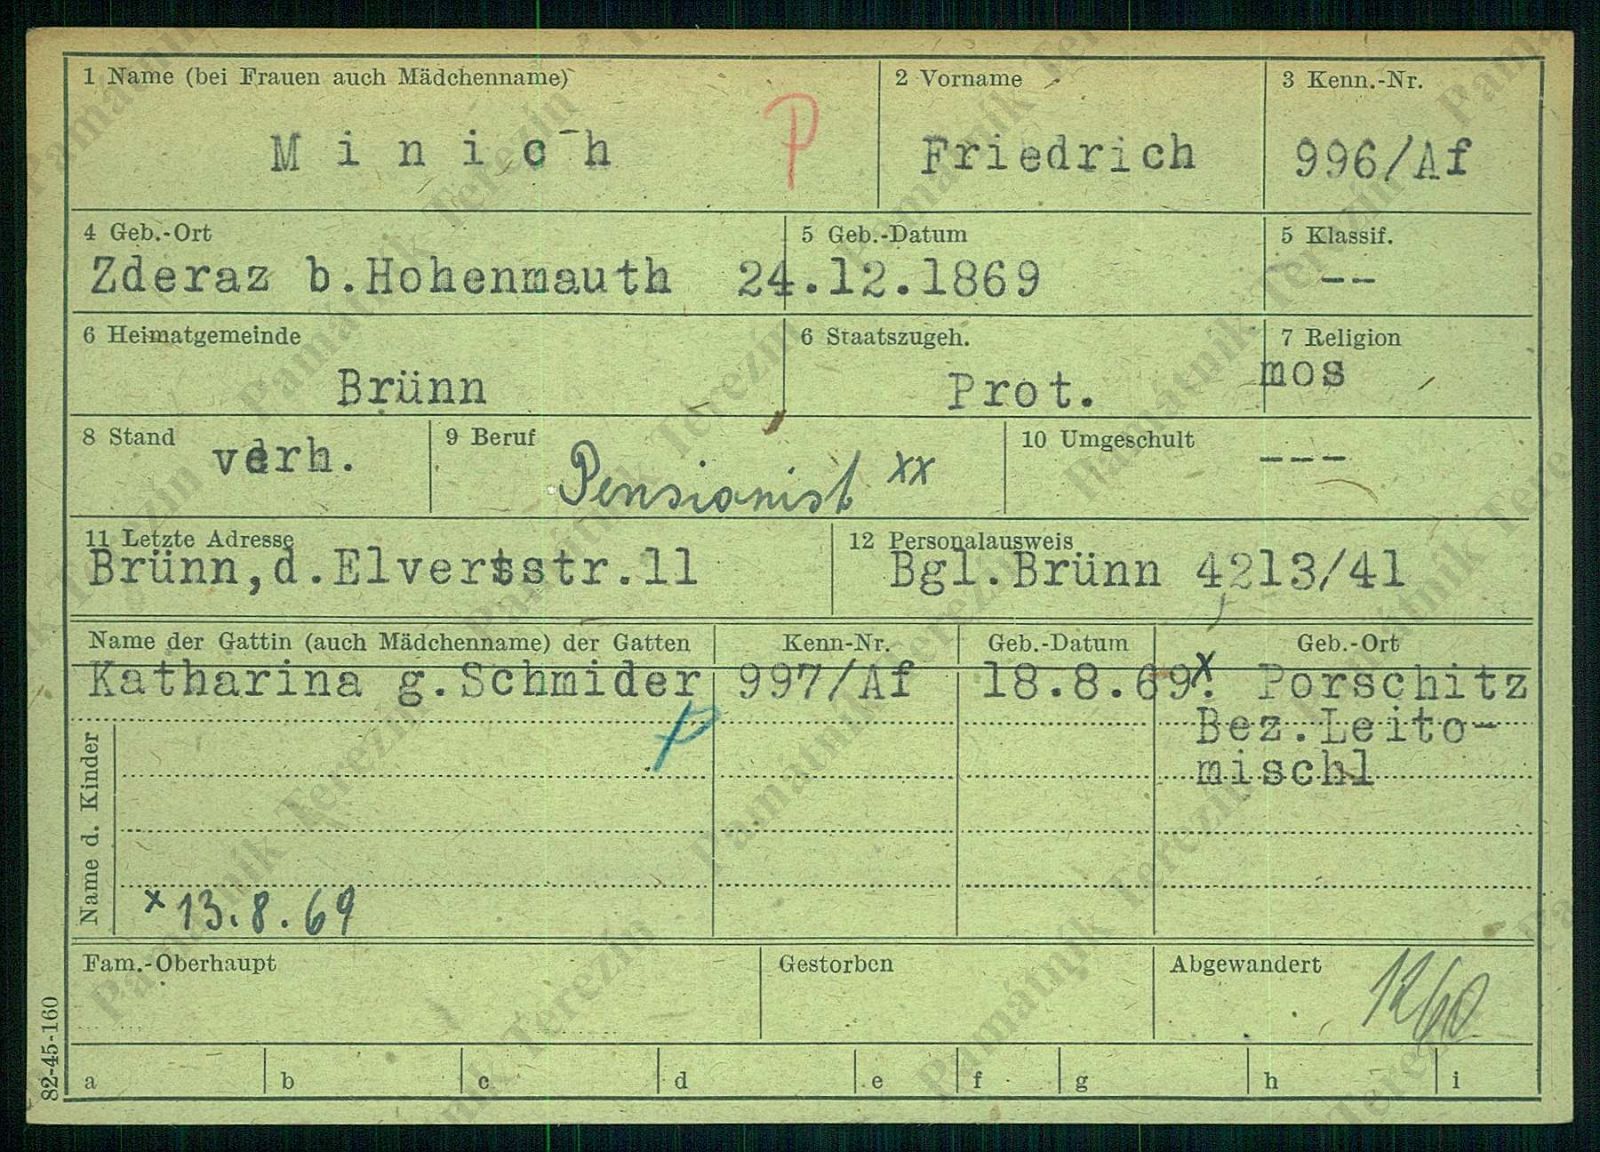 1 Name (bei Frauen auch Mädchenname)
Minich
P
2 Vorname
Friedrich
3 Kenn.-Nr.
996/Af
4 Geb.-Ort
Zderaz b.Hohenmauth
5 Geb.-Datum
24.12.1869
5 Klassif.
--
6 Heimatgemeinde
Brünn
6 Staatszugeh.
Prot.
7 Religion
mos
8 Stand
verh.
9 Beruf
Pensionist xx
10 Umgeschult
---
11 Letzte Adresse
Brünn,d.Elvertstr.11
12 Personalausweis
Bgl.Brünn 4213/41
Name der Gattin (auch Mädchenname) der Gatten
Kenn-Nr.
Geb.-Datum
Geb.-Ort
Katharina g.Schmider
997/Af
18.8.69.
x
Porschitz
Bez.Leito-
mischl
P
Name d. Kinder
x 13.8.69
Fam.-Oberhaupt
Gestorben
Abgewandert
82-45-160
a b c d e f g h i
Památník Terezín